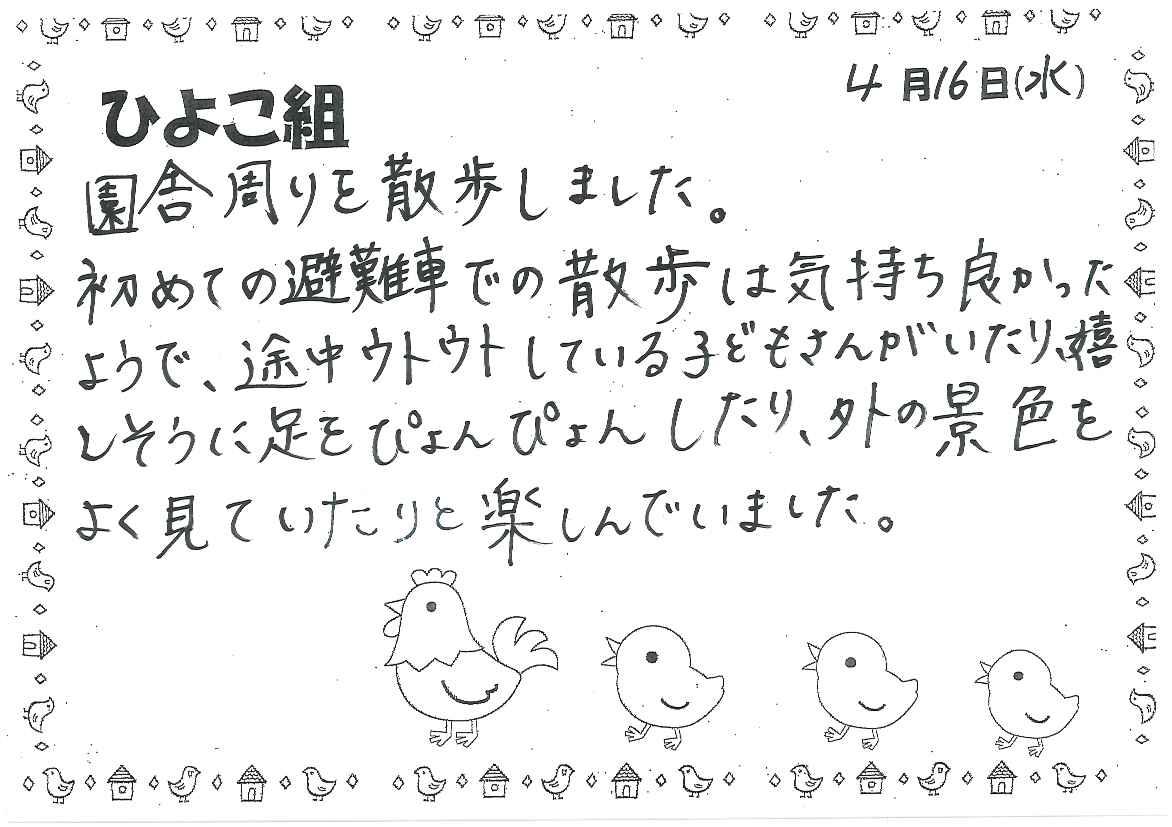 4月16日(水)
ひよこ組
園舎周りを散歩しました。
初めての避難車での散歩は気持ち良かった
ようで、途中ウトウトしている子どもさんがいたり、嬉
しそうに足をぴょんぴょんしたり、外の景色を
よく見ていたりと楽しんでいました。